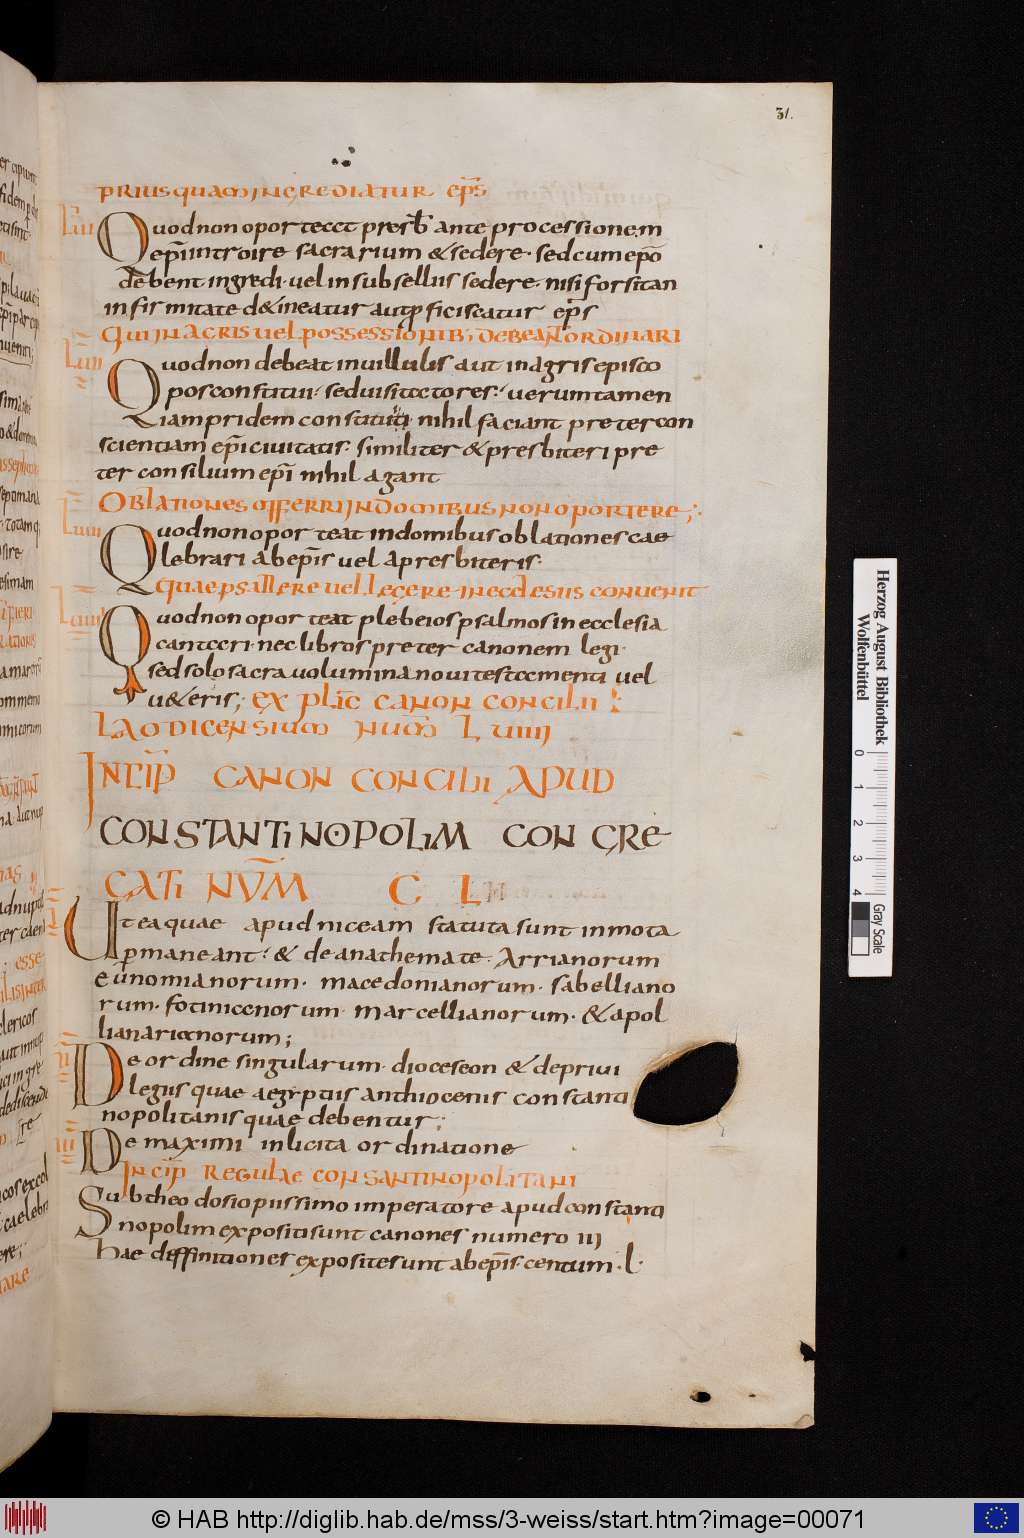 31.
prius quam ingrediatur ep̄s
Lui Quod non oportet presb̄ ante processionem
ep̄i introire sacrarium & sedere · sed cum ep̄o
debent ingredi · uel in subselliis sedere · nisi forsitan
infirmitate d&ineatur aut ꝓficiscatur ep̄s
Qui in acris uel possessionib; debeant ordinari
Luii Quod non debeat in uillulis aut in agris episco
pos constitui · sed uisitatores · uerum tamen
iam pridem constituti nihil faciant preter con
scientiam ep̄i ciuitatis · similiter & presbiteri pre
ter consilium ep̄i nihil agant
Oblationes offerri in domibus non oportere;
Luiii Quod non oporteat in domibus oblationes cae
lebrari ab ep̄is uel a presbiteris ·
Quae psallere uel legere in ecclesiis conuenit
Luiiii Quod non oporteat plebeios psalmos in ecclesia
cantari · nec libros preter canonem legi ·
sed solo sacra uolumina noui testamenti uel
u&eris; explic̄ canon concilii
Laodicensium num̄ Luiiii
Incip̄ canon concilii apud
Constantinopolim congre
gati nūm C L
I Itea quae apud niceam statuta sunt inmota
ꝑmaneant · & de anathemate · Arrianorum
eunomianorum · macedonianorum · sabelliano
rum · fotinianorum · marcellianorum · & apol
linarianorum;
II De ordine singularum dioceseon & de priui
legiis quae aegyptiis anthiocenis constanti
nopolitanis quae debentur;
III De maximi inlicita ordinatione
Incip̄ regulae consantinopolitani
Sub theodosio piissimo imperatore apud constanti
nopolim expositi sunt canones numero iii
Hae diffinitiones exposite sunt ab ep̄is · centum · l ·
Herzog August Bibliothek
Wolfenbüttel
0 1 2 3 4
Gray Scale
© HAB http://diglib.hab.de/mss/3-weiss/start.htm?image=00071